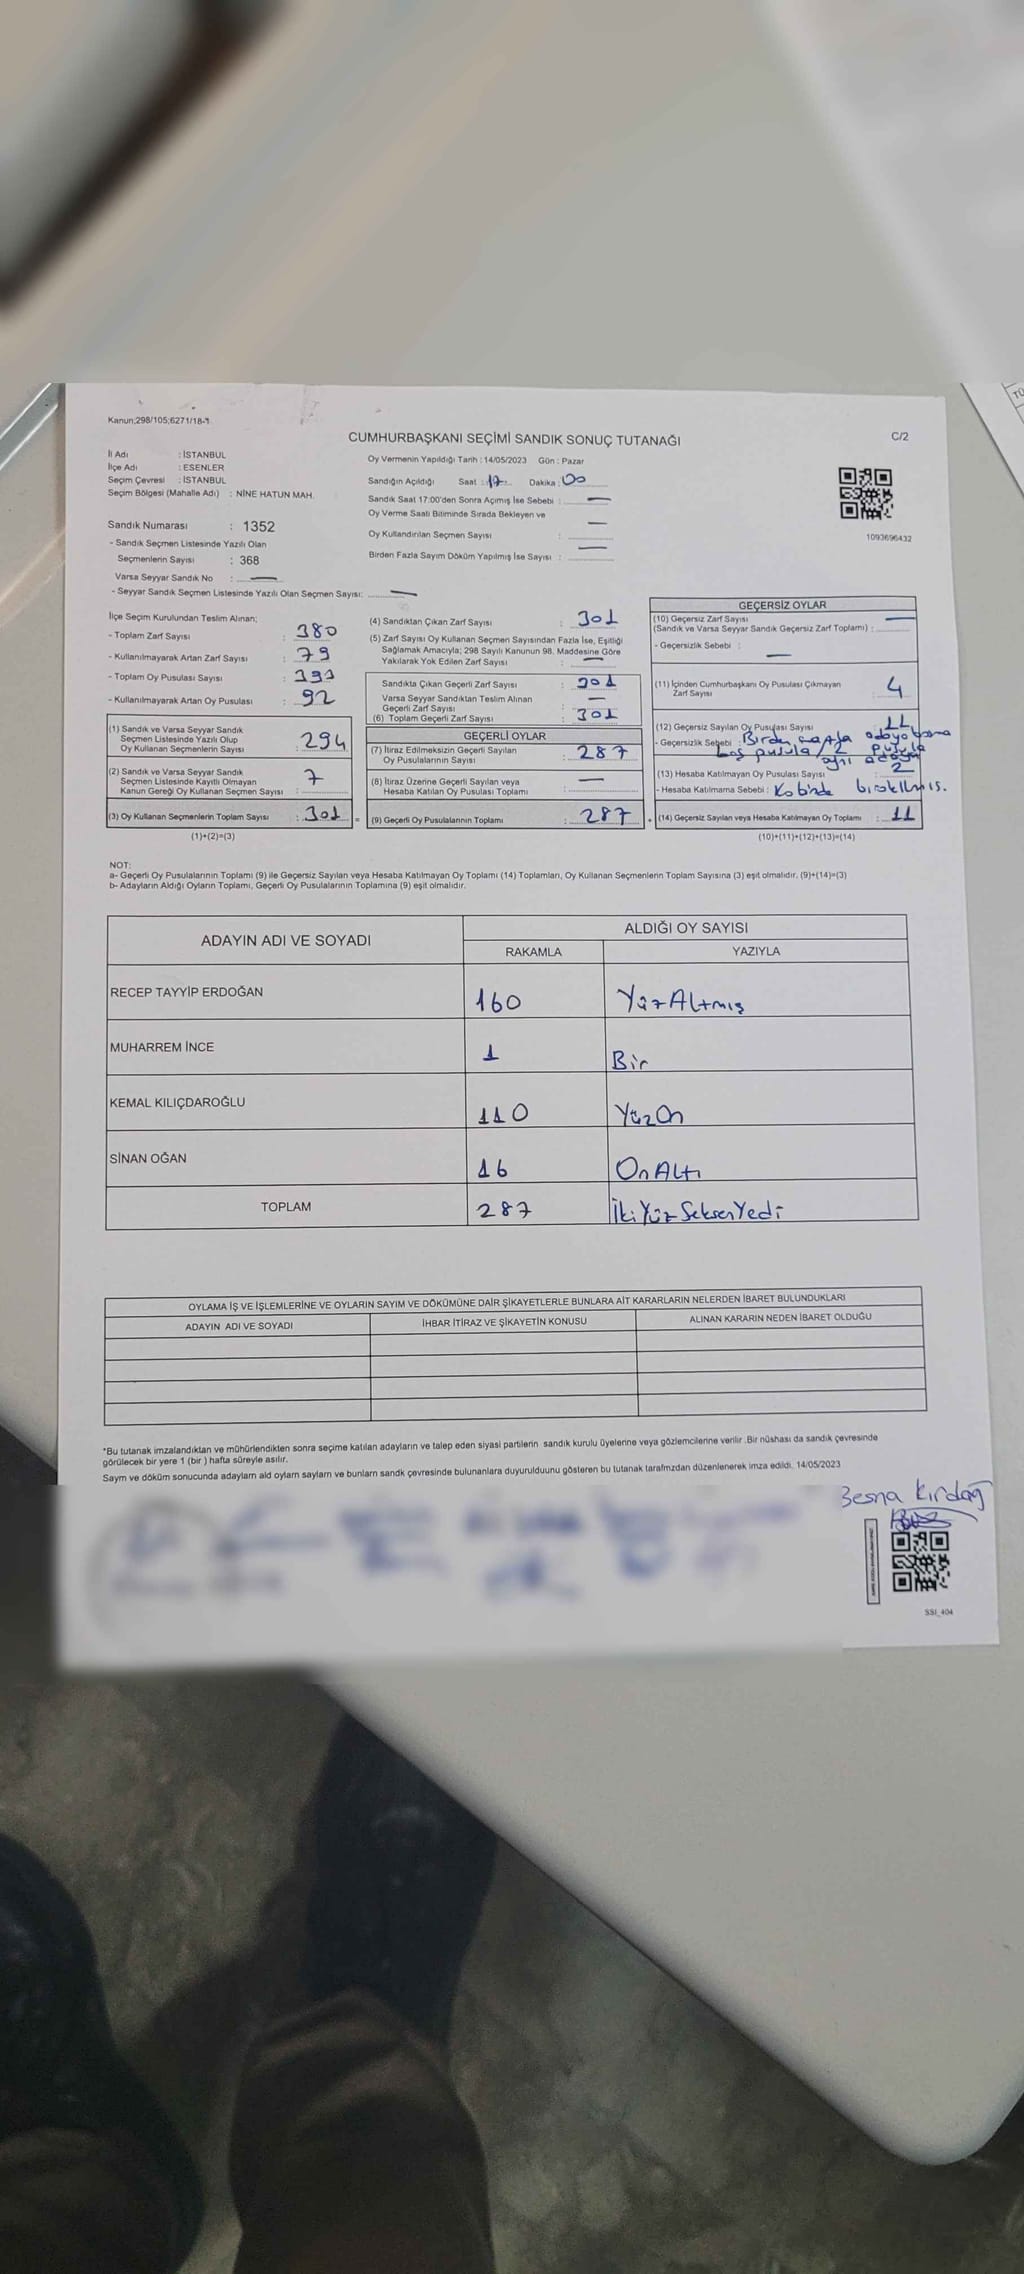 Kanun;298/105;6271/18-1
C/2
CUMHURBAŞKANI SEÇİMİ SANDIK SONUÇ TUTANAĞI
İl Adı : İSTANBUL
İlçe Adı : ESENLER
Seçim Çevresi : İSTANBUL
Seçim Bölgesi (Mahalle Adı) : NİNE HATUN MAH.
Sandık Numarası : 1352
- Sandık Seçmen Listesinde Yazılı Olan
Seçmenlerin Sayısı : 368
Varsa Seyyar Sandık No : —
- Seyyar Sandık Seçmen Listesinde Yazılı Olan Seçmen Sayısı: —
Oy Vermenin Yapıldığı Tarih : 14/05/2023 Gün : Pazar
Sandığın Açıldığı Saat : 17 Dakika : 00
Sandık Saat 17:00'den Sonra Açımış İse Sebebi : —
Oy Verme Saati Bitiminde Sırada Bekleyen ve —
Oy Kullandırılan Seçmen Sayısı :
Birden Fazla Sayım Döküm Yapılmış İse Sayısı : —
1093696432
İlçe Seçim Kurulundan Teslim Alınan;
- Toplam Zarf Sayısı : 380
- Kullanılmayarak Artan Zarf Sayısı : 79
- Toplam Oy Pusulası Sayısı :
- Kullanılmayarak Artan Oy Pusulası : 92
(1) Sandık ve Varsa Seyyar Sandık
Seçmen Listesinde Yazılı Olup
Oy Kullanan Seçmenlerin Sayısı : 294
(2) Sandık ve Varsa Seyyar Sandık
Seçmen Listesinde Kayıtlı Olmayan
Kanun Gereği Oy Kullanan Seçmen Sayısı : 7
(3) Oy Kullanan Seçmenlerin Toplam Sayısı : 301 =
(1)+(2)=(3)
(4) Sandıktan Çıkan Zarf Sayısı : 301
(5) Zarf Sayısı Oy Kullanan Seçmen Sayısından Fazla İse, Eşitliği
Sağlamak Amacıyla; 298 Sayılı Kanunun 98. Maddesine Göre
Yakılarak Yok Edilen Zarf Sayısı : —
Sandıkta Çıkan Geçerli Zarf Sayısı : 301
Varsa Seyyar Sandıktan Teslim Alınan
Geçerli Zarf Sayısı : —
(6) Toplam Geçerli Zarf Sayısı : 301
GEÇERLİ OYLAR
(7) İtiraz Edilmeksizin Geçerli Sayılan
Oy Pusulalarının Sayısı : 287
(8) İtiraz Üzerine Geçerli Sayılan veya
Hesaba Katılan Oy Pusulası Toplamı : —
(9) Geçerli Oy Pusulalarının Toplamı : 287 +
GEÇERSİZ OYLAR
(10) Geçersiz Zarf Sayısı
(Sandık ve Varsa Seyyar Sandık Geçersiz Zarf Toplamı) : —
- Geçersizlik Sebebi : —
(11) İçinden Cumhurbaşkanı Oy Pusulası Çıkmayan
Zarf Sayısı : 4
(12) Geçersiz Sayılan Oy Pusulası Sayısı : 11
- Geçersizlik Sebebi : Birden fazla adaya basma
boş pusula / 2 pusula
ayrı adaya
(13) Hesaba Katılmayan Oy Pusulası Sayısı : 2
- Hesaba Katılmama Sebebi : Kabinde bırakılmış.
(14) Geçersiz Sayılan veya Hesaba Katılmayan Oy Toplamı : 11
(10)+(11)+(12)+(13)=(14)
NOT:
a- Geçerli Oy Pusulalarının Toplamı (9) ile Geçersiz Sayılan veya Hesaba Katılmayan Oy Toplamı (14) Toplamları, Oy Kullanan Seçmenlerin Toplam Sayısına (3) eşit olmalıdır. (9)+(14)=(3)
b- Adayların Aldığı Oyların Toplamı, Geçerli Oy Pusulalarının Toplamına (9) eşit olmalıdır.
ADAYIN ADI VE SOYADI
ALDIĞI OY SAYISI
RAKAMLA YAZIYLA
RECEP TAYYİP ERDOĞAN 160 YüzAltmış
MUHARREM İNCE 1 Bir
KEMAL KILIÇDAROĞLU 110 YüzOn
SİNAN OĞAN 16 OnAltı
TOPLAM 287 İkiYüzSeksenYedi
OYLAMA İŞ VE İŞLEMLERİNE VE OYLARIN SAYIM VE DÖKÜMÜNE DAİR ŞİKAYETLERLE BUNLARA AİT KARARLARIN NELERDEN İBARET BULUNDUKLARI
ADAYIN ADI VE SOYADI İHBAR İTİRAZ VE ŞİKAYETİN KONUSU ALINAN KARARIN NEDEN İBARET OLDUĞU
*Bu tutanak imzalandıktan ve mühürlendikten sonra seçime katılan adayların ve talep eden siyasi partilerin sandık kurulu üyelerine veya gözlemcilerine verilir .Bir nüshası da sandık çevresinde
görülecek bir yere 1 (bir ) hafta süreyle asılır.
Saym ve döküm sonucunda adaylarn ald oylarn saylarn ve bunlarn sandk çevresinde bulunanlara duyurulduunu gösteren bu tutanak tarafmzdan düzenlenerek imza edildi. 14/05/2023
Besna Kırdağ
SSI_404